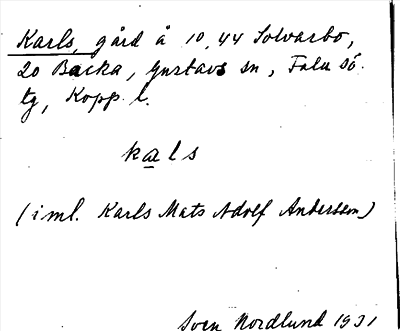 Karls, gård å 10,44 Solvarbo,
20 Backa, Gustavs sn, Falu sö.
tg, Kopp. l.
kals
(iml. Karls Mats Adolf Andersson)
Sven Nordlund 1931